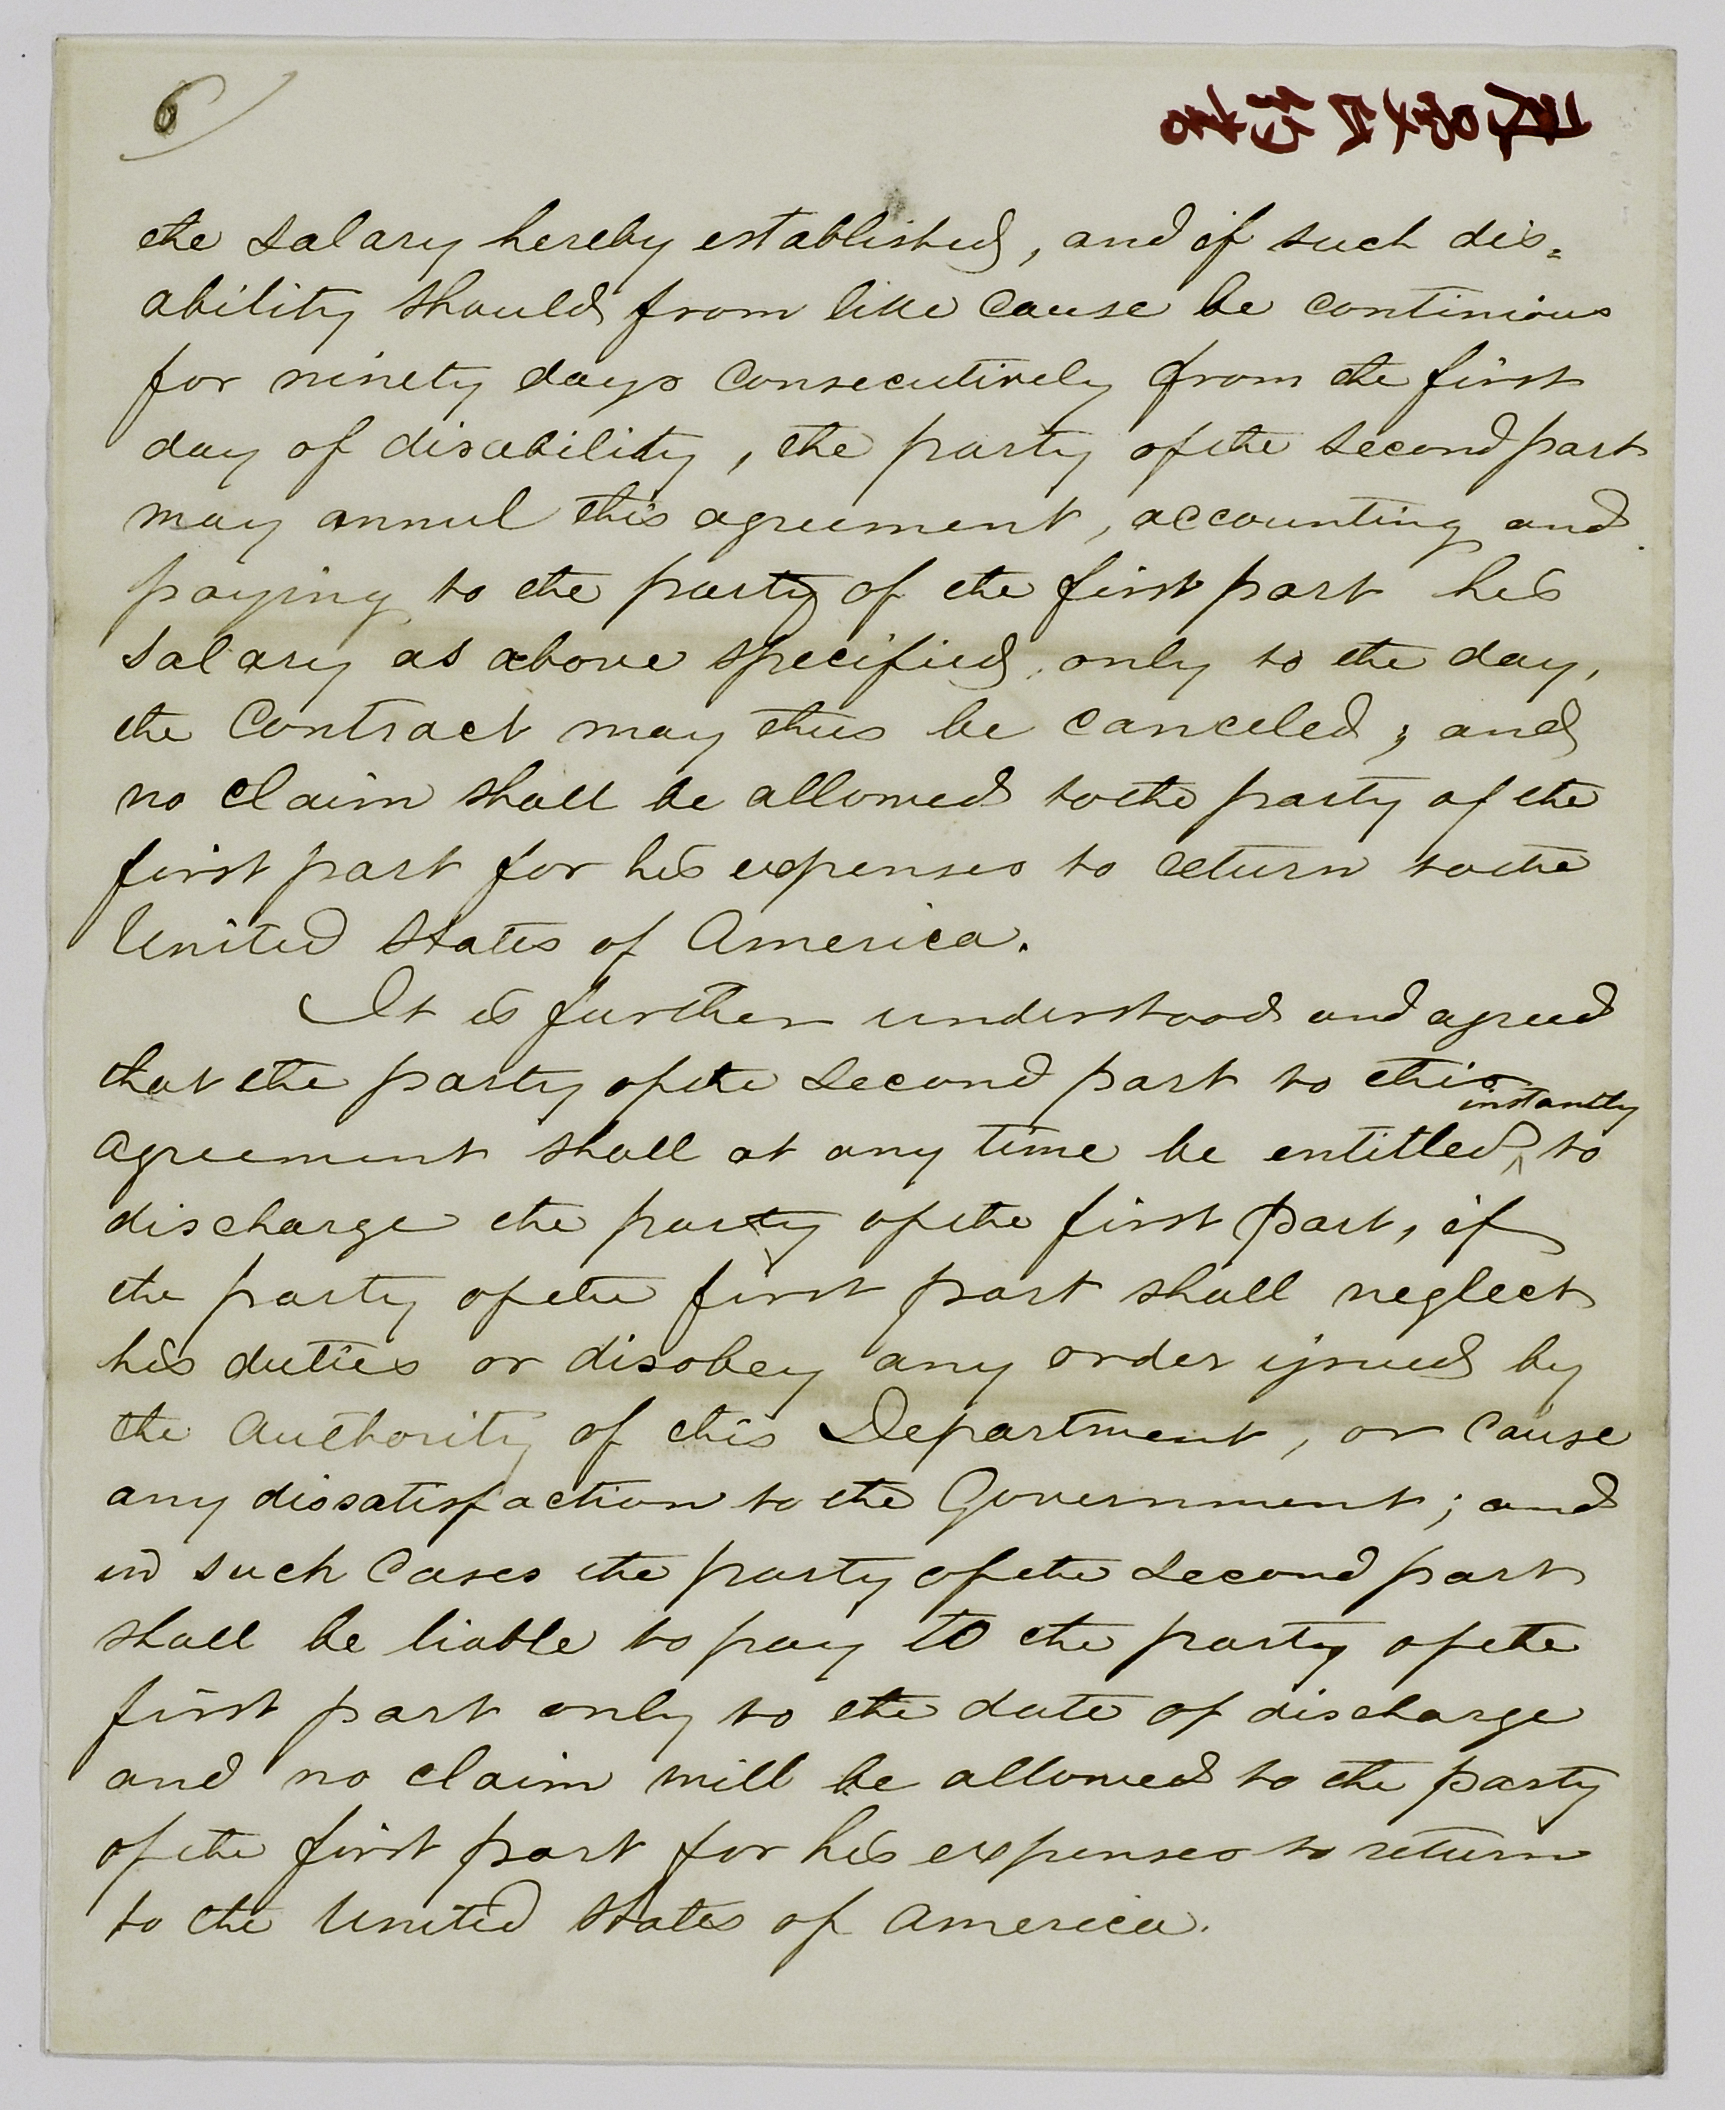 6
the salary hereby established, and if such dis=
ability should from like cause be continious
for ninety days consecutively from the first
day of disability, the party of the second part
may annul this agreement, accounting and
paying to the party of the first part his
salary as above specified, only to the day,
the Contract may thus be canceled; and
no claim shall be allowed to the party of the
first part for his expenses to return to the
United States of America.
It is further understood and agreed
that the party of the second part to this
instantly
agreement shall at any time be entitled ^ to
discharge the party of the first part, if
the party of the first part shall neglect
his duties or disobey any order issued by
the Authority of this Department, or cause
any dissatisfaction to the Government; and
in such cases the party of the second part
shall be liable to pay to the party of the
first part only to the date of discharge
and no claim will be allowed to the party
of the first part for his expenses to return
to the United States of America.